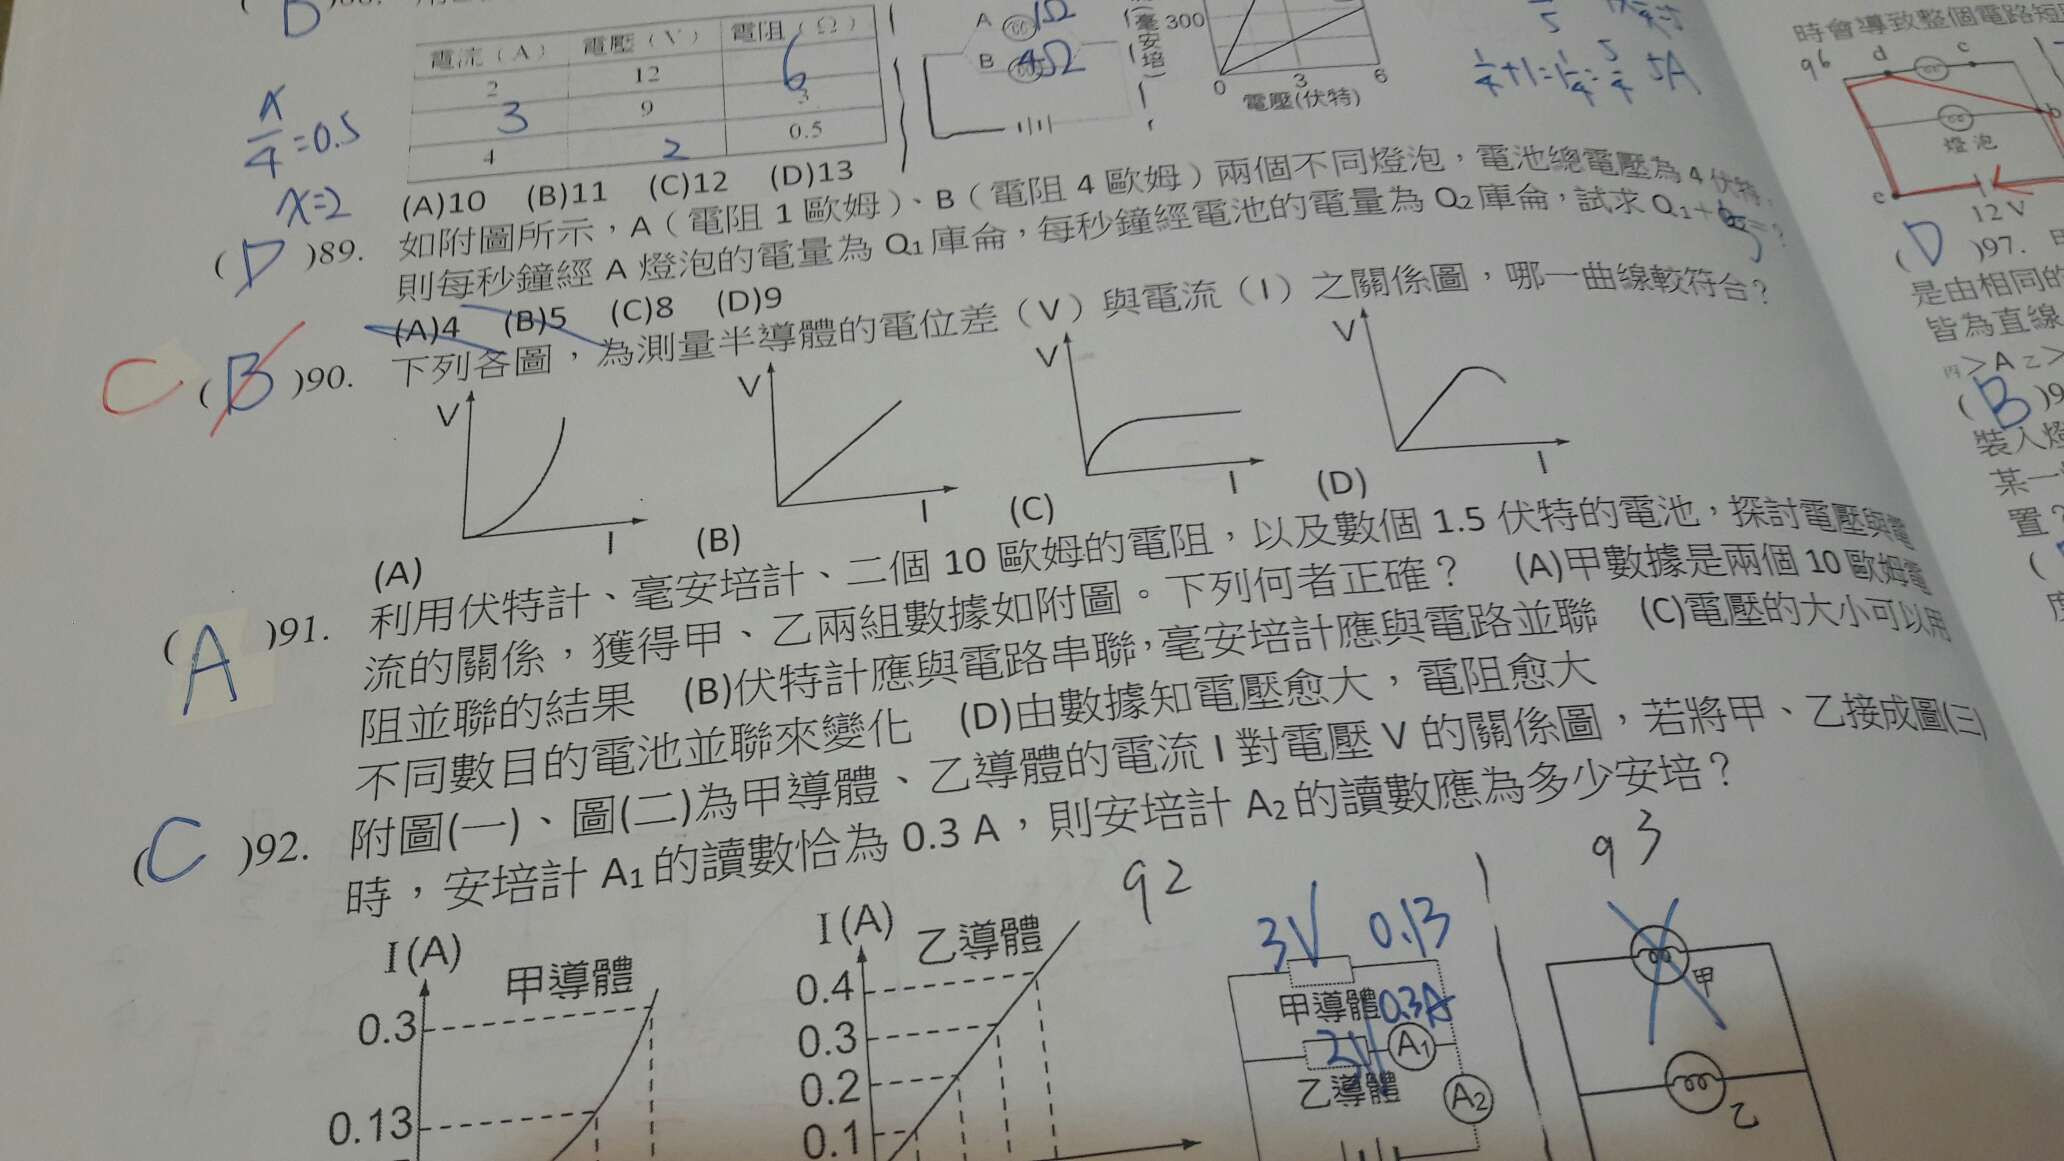 電流（A） 電壓（V） 電阻（Ω）
2 12 6
3 9 3
4 2 0.5
x/4=0.5
x=2
A 1Ω
B 4Ω
300
0 3 6
電壓(伏特)
1/4+1=1 1/4=5/4 5A
(A)10 (B)11 (C)12 (D)13
(D)89. 如附圖所示，A（電阻 1 歐姆）、B（電阻 4 歐姆）兩個不同燈泡，電池總電壓為 4 伏特，
則每秒鐘經 A 燈泡的電量為 Q₁庫侖，每秒鐘經電池的電量為 Q₂庫侖，試求 Q₁+
(A)4 (B)5 (C)8 (D)9
C (B)90. 下列各圖，為測量半導體的電位差（V）與電流（I）之關係圖，哪一曲線較符合？
V V V V
I I I I
(A) (B) (C) (D)
(A)91. 利用伏特計、毫安培計、二個 10 歐姆的電阻，以及數個 1.5 伏特的電池，探討電壓與電
流的關係，獲得甲、乙兩組數據如附圖。下列何者正確？ (A)甲數據是兩個 10 歐姆電
阻並聯的結果 (B)伏特計應與電路串聯，毫安培計應與電路並聯 (C)電壓的大小可以用
不同數目的電池並聯來變化 (D)由數據知電壓愈大，電阻愈大
(C)92. 附圖(一)、圖(二)為甲導體、乙導體的電流 I 對電壓 V 的關係圖，若將甲、乙接成圖(三)
時，安培計 A₁的讀數恰為 0.3 A，則安培計 A₂的讀數應為多少安培？
92
93
I(A) 甲導體
0.3
0.13
I(A) 乙導體
0.4
0.3
0.2
0.1
3V 0.13
甲導體 0.3A
2V A₁
乙導體 A₂
甲
乙
時會導致整個電路短
96 d c
b
燈泡
e
12 V
(D)97.
是由相同的
皆為直線
丙＞A乙＞
(B)9
裝入燈
某一
置？